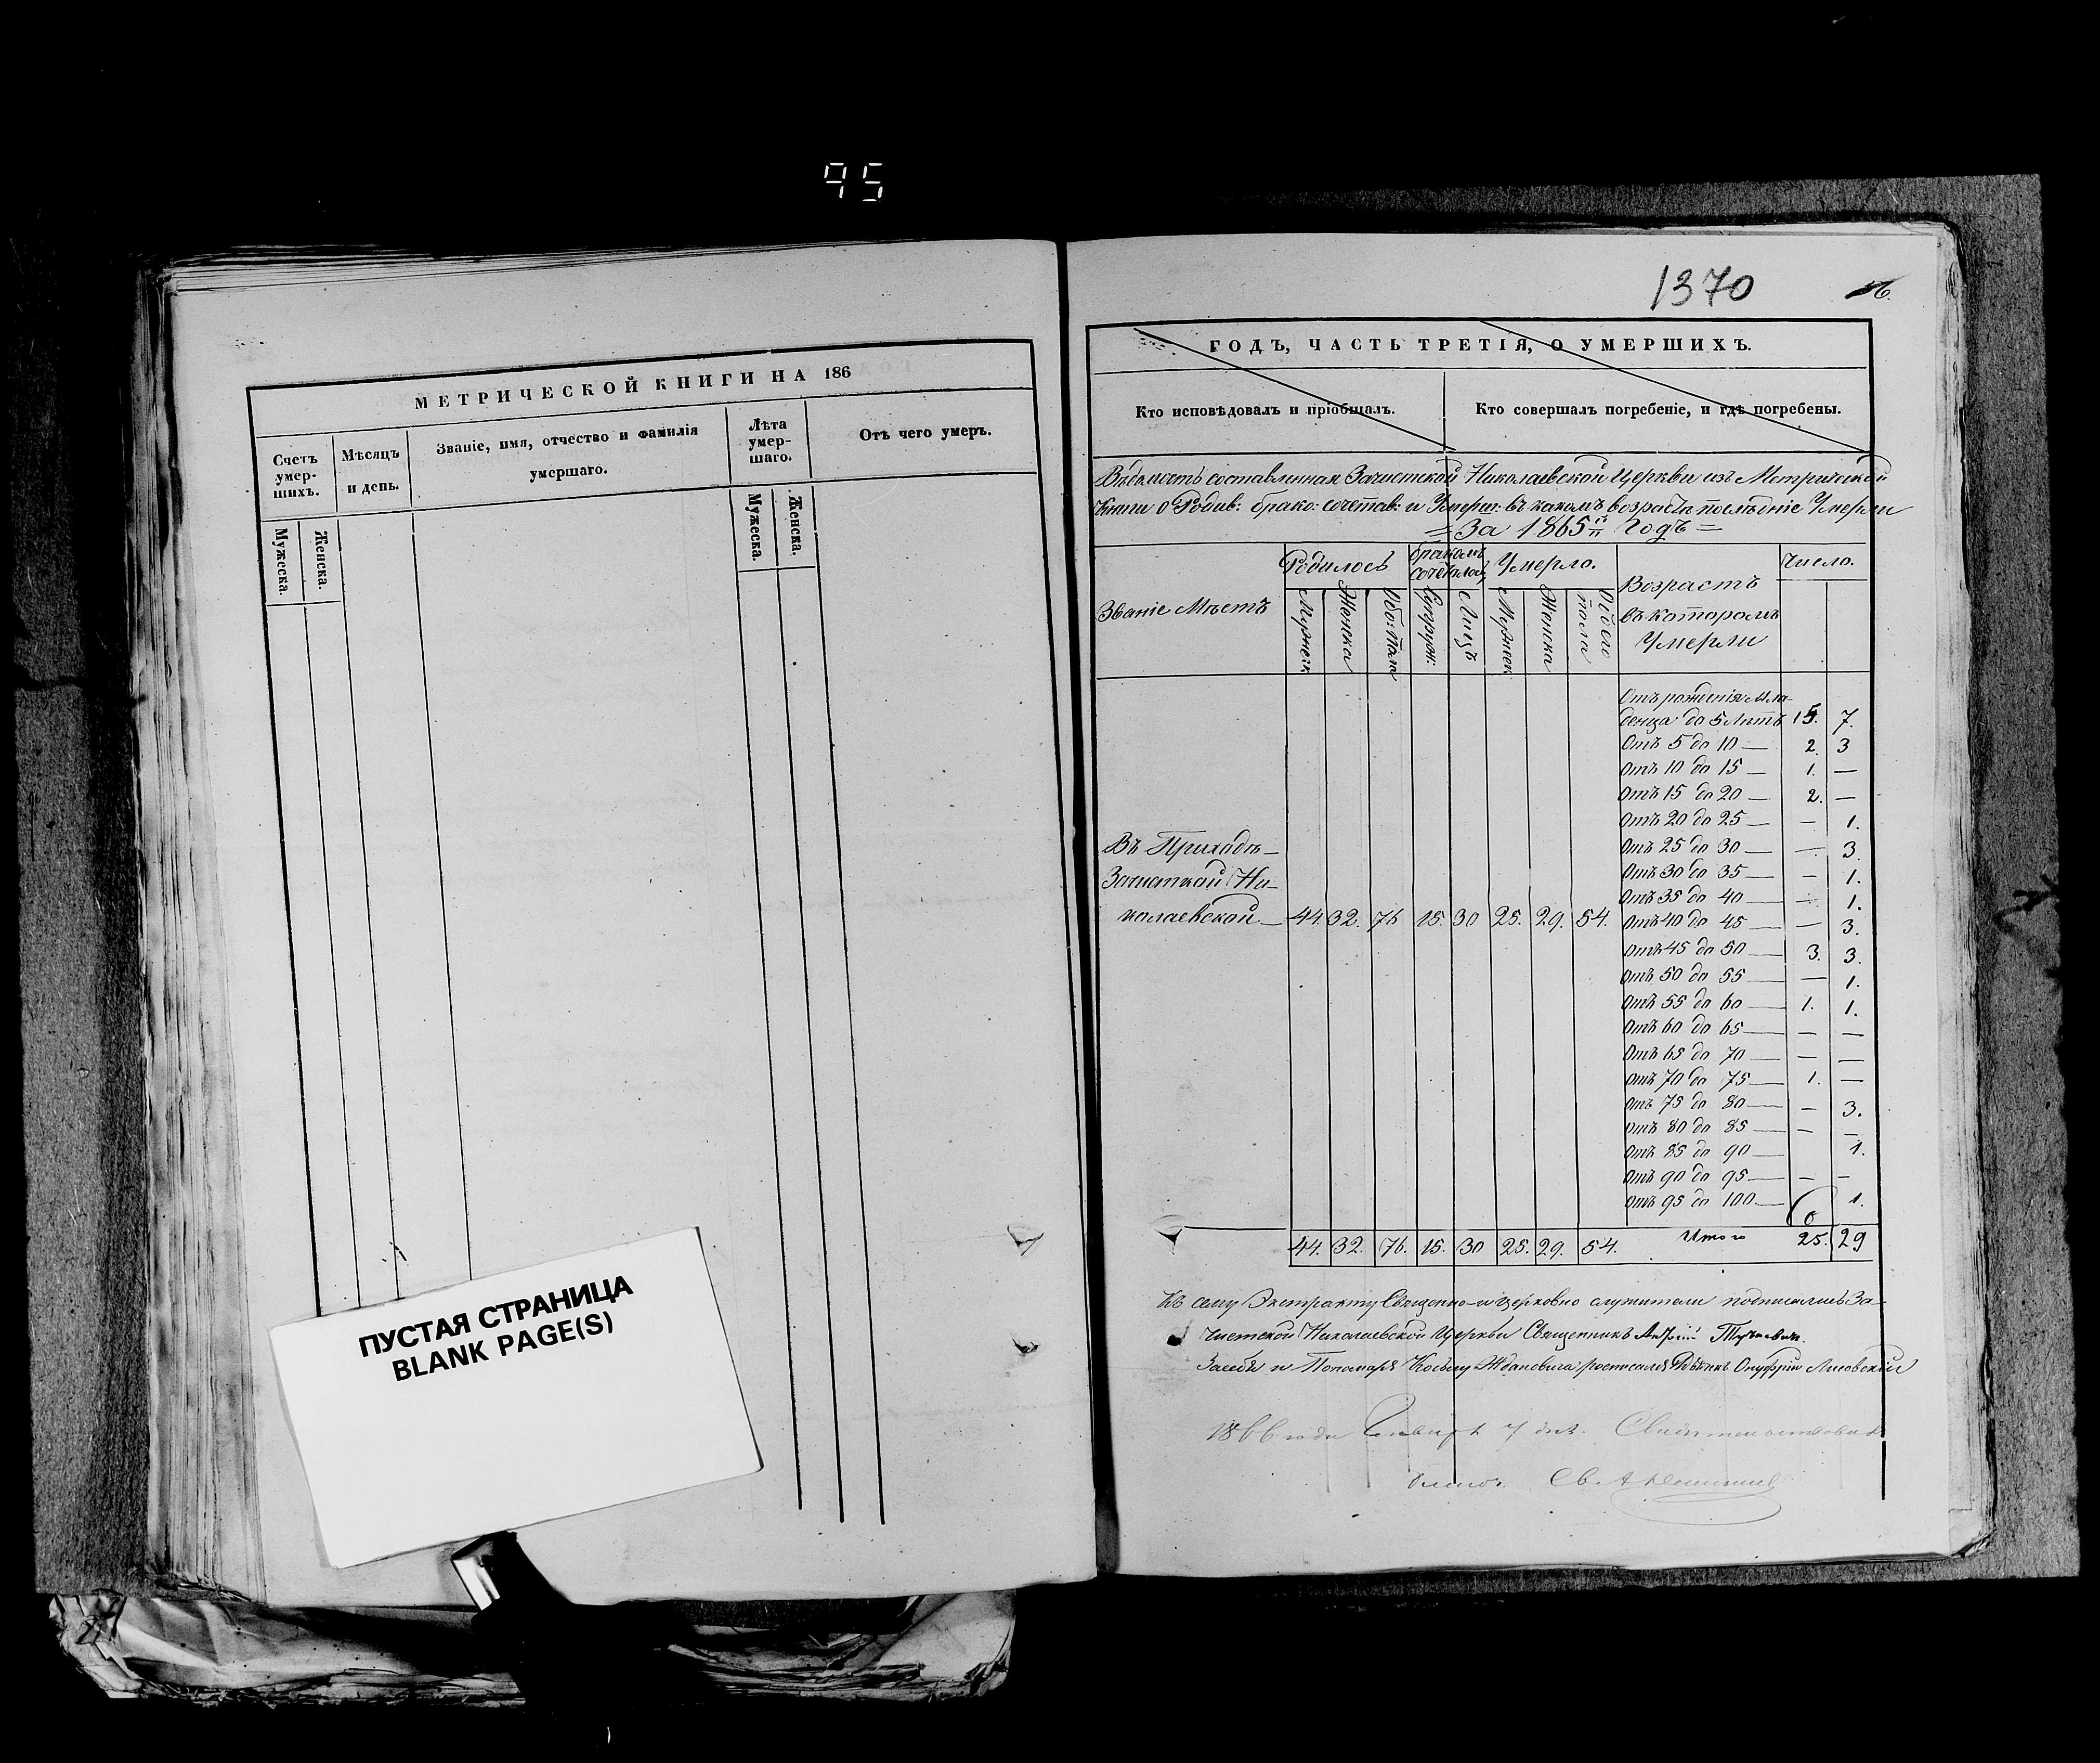 95
МЕТРИЧЕСКОЙ КНИГИ НА 186
Счетъ умер-шихъ.
Мѣсяцъ и день.
Званіе, имя, отчество и фамилія умершаго.
Лѣта умер-шаго.
Отъ чего умеръ.
Мужеска.
Женска.
Мужеска.
Женска.
ПУСТАЯ СТРАНИЦА
BLANK PAGE(S)
1370
ГОДЪ, ЧАСТЬ ТРЕТІЯ, О УМЕРШИХЪ.
Кто исповѣдовалъ и пріобщалъ.
Кто совершалъ погребеніе, и гдѣ погребены.
Вѣдомость составленная Зачистской Николаевской Церкви изъ Метрической
Книги о Родив: брако: сочетав: и Умерш: въ какомъ возрастѣ послѣдніе Умерли
= За 1865й Годъ =
Званіе Мѣстъ
Родилось
бракомъ сочеталось
Умерло.
Возрастъ въ которомъ Умерли
Число.
Мужеск
Женска
Об: пола
Супруж:
Лицъ
Мужеск
Женска
Обоего пола
Отъ рожденія Мла-
денца до 5 Лѣтъ 15. 7.
Отъ 5 до 10 — 2. 3
Отъ 10 до 15 — 1. —
Отъ 15 до 20 — 2. —
Отъ 20 до 25 — — 1.
Отъ 25 до 30 — — 3.
Отъ 30 до 35 — — 1.
Отъ 35 до 40 — — 1.
Отъ 40 до 45 — — 3.
Отъ 45 до 50 — 3. 3.
Отъ 50 до 55 — — 1.
Отъ 55 до 60 — 1. 1.
Отъ 60 до 65 — — —
Отъ 65 до 70 — — —
Отъ 70 до 75 — 1. —
Отъ 75 до 80 — — 3.
Отъ 80 до 85 — — —
Отъ 85 до 90 — 1.
Отъ 90 до 95 — — —
Отъ 95 до 100 — 1.
Въ Приходѣ —
Зачистской Ни-
колаевской — 44. 32. 76 15. 30 25. 29. 54.
44. 32. 76. 15. 30 25. 29. 54. Итого 25. 29
Къ сему Экстракту Священно-и церковно служители подписались За-
чистской Николаевской Церкви Священникъ
Засебя и Пономаря Косьму Ждановича росписался Онуфрій Лисовскій
1866 года Января 7 дня. Свидѣтельствовалъ